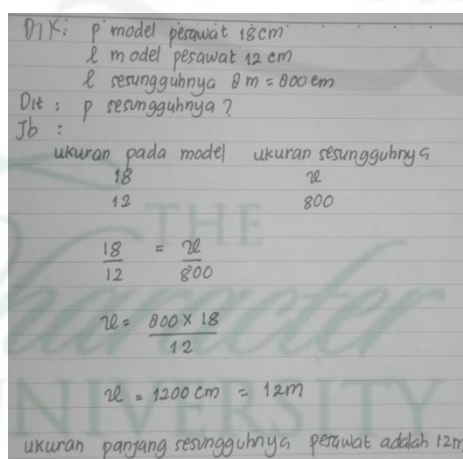 Dik: p model pesawat 18cm
l model pesawat 12 cm
l sesungguhnya 8 m = 800 cm
Dit : p sesungguhnya ?
Jb :
ukuran pada model ukuran sesungguhnya
18 x
12 800
18/12 = x/800
x = 800 x 18 / 12
x = 1200 cm = 12m
ukuran panjang sesungguhnya pesawat adalah 12m
THE
Character
UNIVERSITY